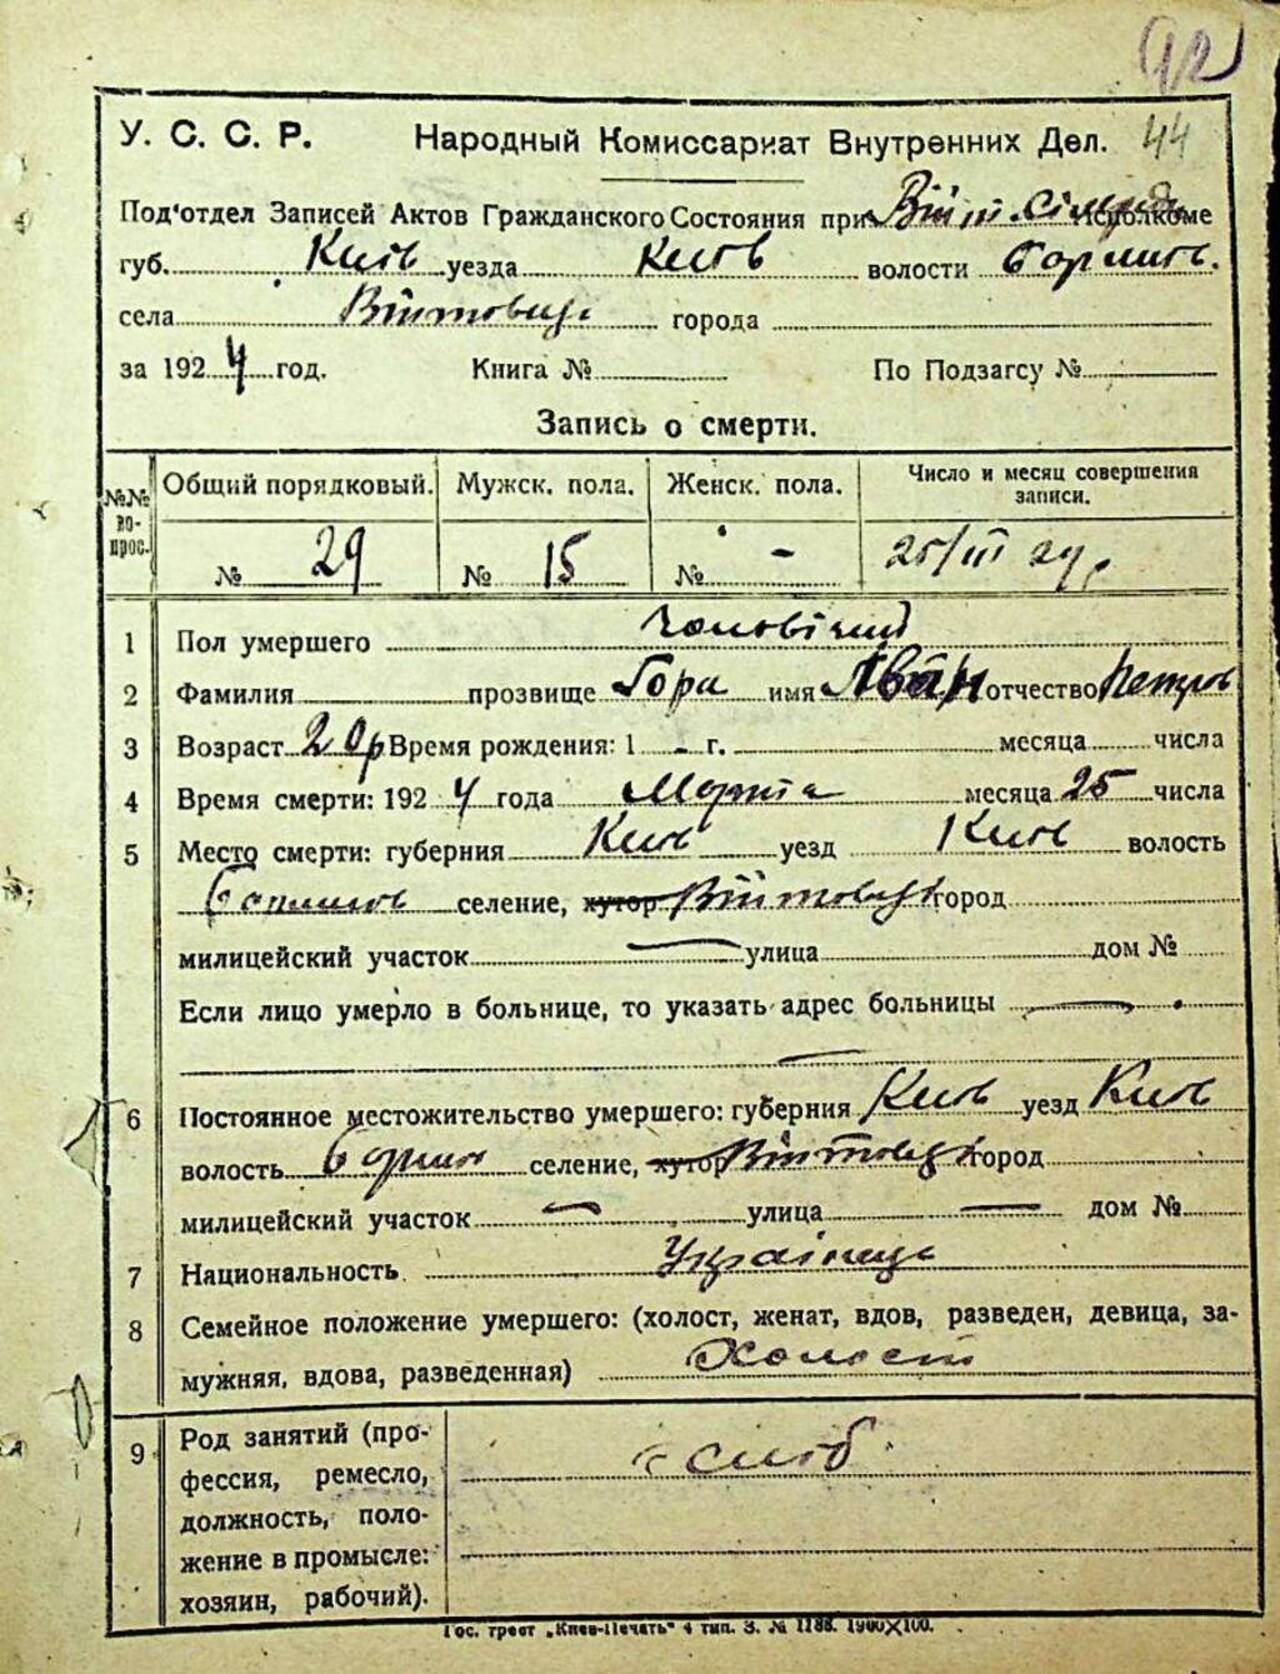 92
У. С. С. Р. Народный Комиссариат Внутренних Дел. 44
Под'отдел Записей Актов Гражданского Состояния при Исполкоме
губ. Київ уезда Київ волости
села Війтовці города
за 1924 год. Книга № По Подзагсу №
Запись о смерти.
№№ во- прос. Общий порядковый. Мужск. пола. Женск. пола. Число и месяц совершения записи.
№ 29 № 15 № - 25/III 24 р
1 Пол умершего чоловічий
2 Фамилия прозвище Гора имя Іван отчество Петров
3 Возраст 20 р Время рождения: 1 - г. месяца числа
4 Время смерти: 1924 года Марта месяца 25 числа
5 Место смерти: губерния Київ уезд Київ волость
селение, хутор Війтовці город
милицейский участок улица дом №
Если лицо умерло в больнице, то указать адрес больницы
6 Постоянное местожительство умершего: губерния Київ уезд Київ
волость селение, хутор Війтовці город
милицейский участок улица дом №
7 Национальность Українець
8 Семейное положение умершего: (холост, женат, вдов, разведен, девица, за-
мужняя, вдова, разведенная) Холост
9 Род занятий (про-
фессия, ремесло,
должность, поло-
жение в промысле:
хозяин, рабочий).
Гос. трест „Киев-Печать" 4 тип. З. № 1188. 1900X100.